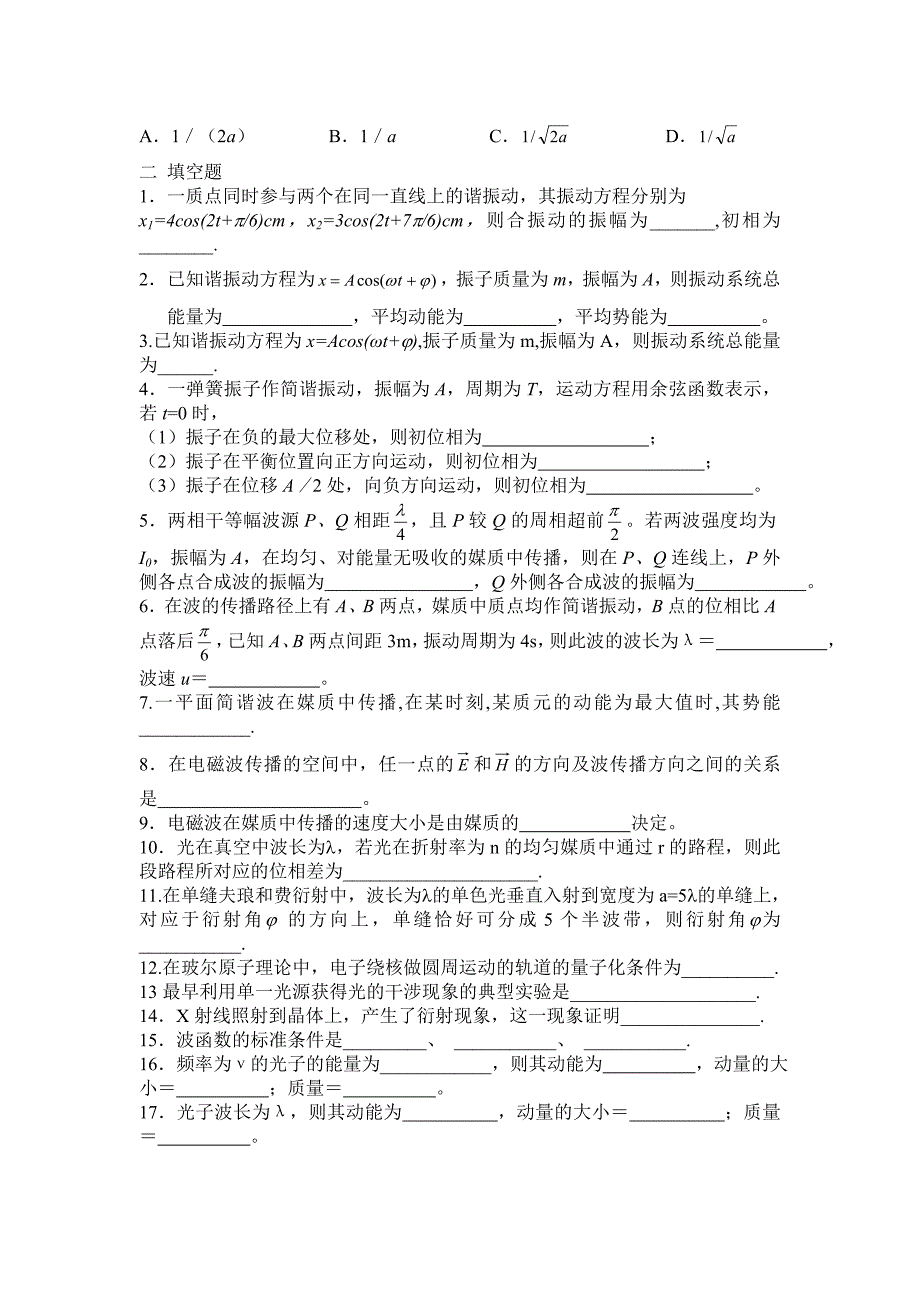 A．1／（2a） B．1／a C．1/√2a D．1/√a
二 填空题
1．一质点同时参与两个在同一直线上的谐振动，其振动方程分别为
x1=4cos(2t+π/6)cm，x2=3cos(2t+7π/6)cm，则合振动的振幅为_______,初相为
________.
2．已知谐振动方程为x = Acos(ωt + φ)，振子质量为m，振幅为A，则振动系统总
能量为______________，平均动能为__________，平均势能为__________。
3.已知谐振动方程为x=Acos(ωt+φ),振子质量为m,振幅为A，则振动系统总能量
为______.
4．一弹簧振子作简谐振动，振幅为A，周期为T，运动方程用余弦函数表示，
若t=0时，
（1）振子在负的最大位移处，则初位相为__________________；
（2）振子在平衡位置向正方向运动，则初位相为__________________；
（3）振子在位移A／2处，向负方向运动，则初位相为__________________。
5．两相干等幅波源P、Q相距λ/4，且P较Q的周相超前π/2。若两波强度均为
I0，振幅为A，在均匀、对能量无吸收的媒质中传播，则在P、Q连线上，P外
侧各点合成波的振幅为________________，Q外侧各合成波的振幅为____________。
6．在波的传播路径上有A、B两点，媒质中质点均作简谐振动，B点的位相比A
点落后π/6，已知A、B两点间距3m，振动周期为4s，则此波的波长为λ＝____________，
波速u＝____________。
7.一平面简谐波在媒质中传播,在某时刻,某质元的动能为最大值时,其势能
____________.
8．在电磁波传播的空间中，任一点的E⃗和H⃗的方向及波传播方向之间的关系
是______________________。
9．电磁波在媒质中传播的速度大小是由媒质的____________决定。
10．光在真空中波长为λ，若光在折射率为n的均匀媒质中通过r的路程，则此
段路程所对应的位相差为_____________________.
11.在单缝夫琅和费衍射中，波长为λ的单色光垂直入射到宽度为a=5λ的单缝上，
对应于衍射角φ 的方向上，单缝恰好可分成5个半波带，则衍射角φ为
___________.
12.在玻尔原子理论中，电子绕核做圆周运动的轨道的量子化条件为__________.
13最早利用单一光源获得光的干涉现象的典型实验是____________________.
14．X射线照射到晶体上，产生了衍射现象，这一现象证明_______________.
15．波函数的标准条件是_________、 ___________、 ___________.
16．频率为ν的光子的能量为____________，则其动能为__________，动量的大
小＝__________；质量＝__________。
17．光子波长为λ，则其动能为__________，动量的大小＝__________；质量
＝__________。